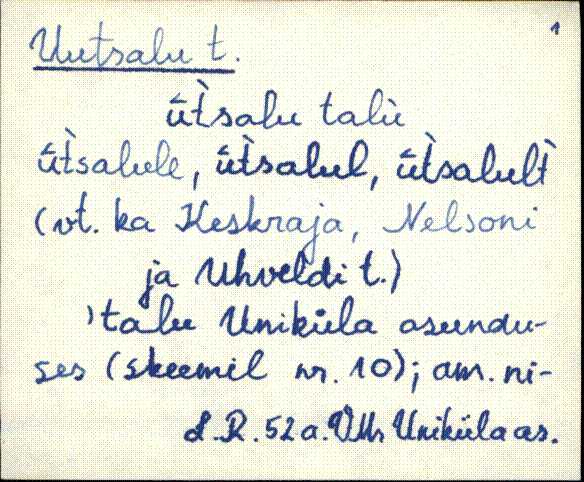 1
Uutsalu t.
üt̀salu talu
üt̀salule, üt̀salul, üt̀salult
(vt. ka Keskraja, Nelsoni
ja Uhveldi t.)
talu Uniküla asundu-
ses (skeemil nr. 10); am. ni-
L.R. 52 a. Uniküla as.